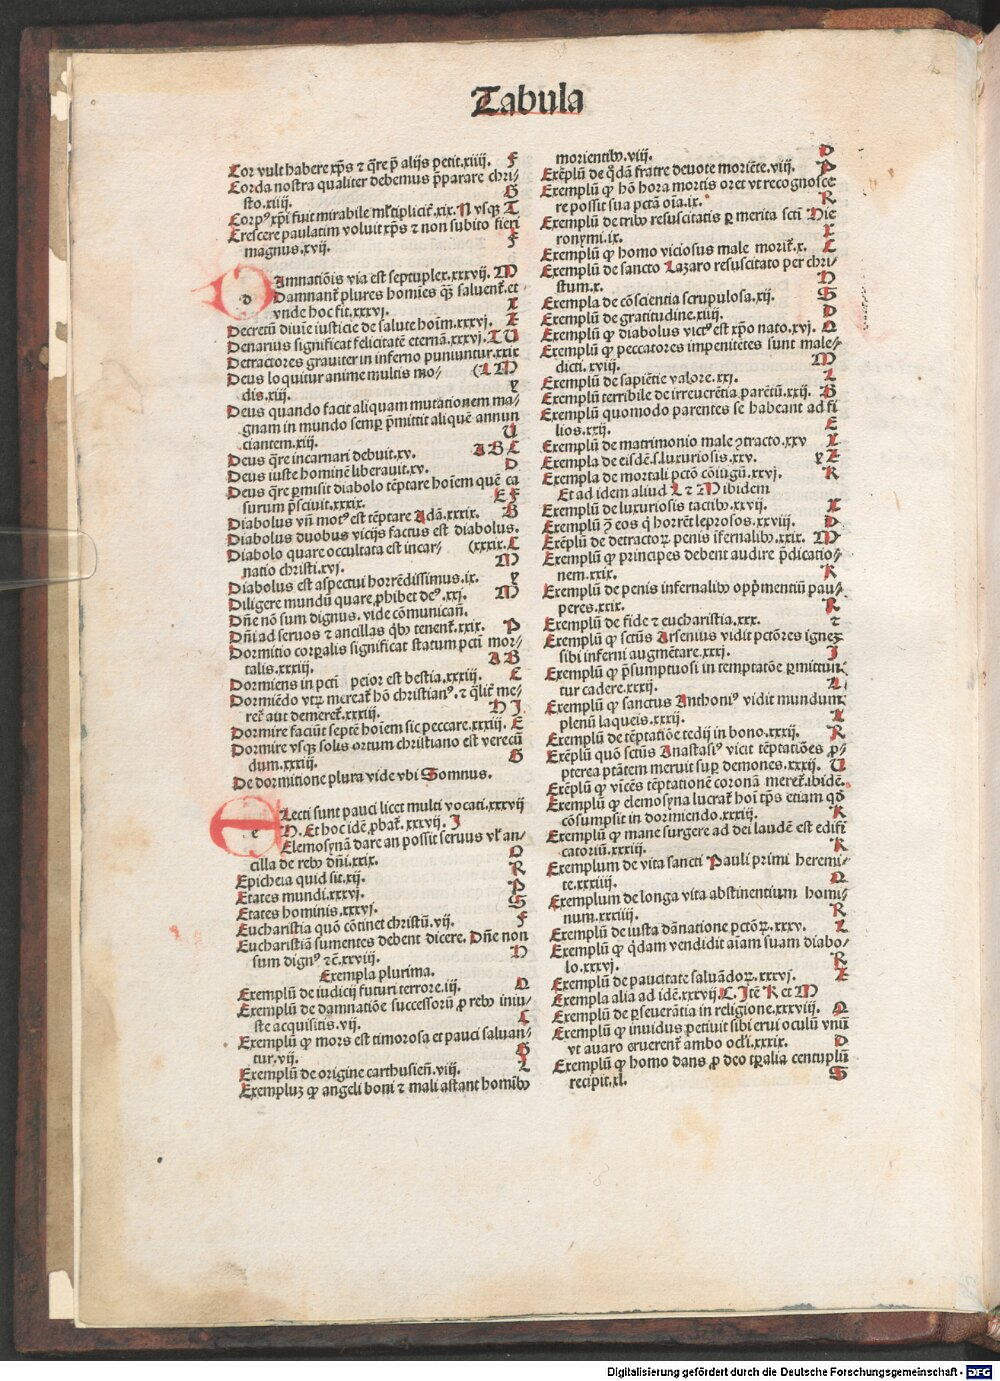 Tabula
Cor vult habere xp̄s ⁊ q̄re p̄ alijs petit.xiiij. F
Corda nostra qualiter debemus p̄parare chri-
sto.xiiij. G
Corpꝰ xp̄i fuit mirabile mƚ'tiplicit̄.xix. N vsqꝫ T
Crescere paulatim voluit xp̄s ⁊ non subito fieri
magnus.xvij. F
d Damnatiōis via est septuplex.xxxvij. M
Damnant̄ plures homies qꝫ̄ saluent̄.et
vnde hoc fit.xxxvj. X
Decretū diuīe iusticie de salute hoīm.xxxvj. Z
Denarius significat felicitatē eternā.xxxvj. T U
Detractores grauiter in inferno puniuntur.xxix
Deus loquitur anime multis mo- (L M
dis.xiij. y
Deus quando facit aliquam mutationem ma-
gnam in mundo semꝑ p̄mittit aliquē annun
ciantem.xiij. U
Deus q̄re incarnari debuit.xv. A B C
Deus iuste hominē liberauit.xv. D
Deus q̄re ꝑmisit diabolo tēptare hoīem quē ca
surum p̄sciuit.xxxix. E F
Diabolus vn̄ motꝰ est tēptare Adā.xxxix. B
Diabolus duobus vicijs factus est diabolus.
Diabolo quare occultata est incar- (xxxix. C
natio christi.xvj. M
Diabolus est aspectui horrēdissimus.ix. y
Diligere mundū quare ꝓhibet deꝰ.xxj. M
Dn̄e nō sum dignus. vide cōmunican̄.
Dn̄i ad seruos ⁊ ancillas qͥbꝫ tenent̄.xxix. P
Dormitio corꝑalis significat statum pcti mor-
talis.xxxiij. A B
Dormiens in pctī peior est bestia.xxxiij. C
Dormiēdo vtꝝ mereat̄ hō christianꝰ. ⁊ qͥlit̄ me-
ret̄ aut demeret̄.xxxiij. H I
Dormire faciūt septē hoīem sic peccare.xxxiij. E
Dormire vsqꝫ solis ortum christiano est verecū
dum.xxxiij. G
De dormitione plura vide vbi Somnus.
e Electi sunt pauci licet multi vocati.xxxvij
H. Et hoc idē ꝓbat̄.xxxvij. I
Elemosynā dare an possit seruus vƚ' an-
cilla de rebꝫ dn̄i.xxix. O
Epicheia quid sit.xij. R
Etates mundi.xxxvj. P
Etates hominis.xxxvj. S
Eucharistia quō cōtinet christū.vij. F
Eucharistiā sumentes debent dicere. Dn̄e non
sum dignꝰ ⁊c̄.xxviij. H
Exempla plurima.
Exemplū de iudicij futuri terrore.iij. Q
Exemplū de damnatiōe successorū ꝓ rebꝫ iniu-
ste acquisitis.vij. C
Exemplū ꝙ mors est timorosa et pauci saluan-
tur.vij. G
Exemplū de origine carthusien̄.viij. Z
Exempluꝫ ꝙ angeli boni ⁊ mali astant homībꝫ
morientibꝫ.viij. D
Exēplū de qͦdā fratre deuote moriēte.viij. P
Exemplū ꝙ hō hora mortis oret vt recognosce
re possit sua pctā oīa.ix. R
Exemplū de tribꝫ resuscitatis ꝑ merita sctī Hie
ronymi.ix. X
Exemplū ꝙ homo viciosus male morit̄.x. C
Exemplū de sancto Lazaro resuscitato per chri-
stum.x. H
Exempla de cōscientia scrupulosa.xij. S
Exemplū de gratitudine.xiiij. D
Exemplū ꝙ diabolus victꝰ est xp̄o nato.xvj. Q
Exemplū ꝙ peccatores impenitētes sunt male-
dicti.xviij. M
Exemplū de sapiētie valore.xxj. L
Exemplū terribile de irreuerētia parētū.xxij. B
Exemplū quomodo parentes se habeant ad fi
lios.xxij. E
Exemplū de matrimonio male ꝯtracto.xxv X
Exempla de eisdē.s.luxuriosis.xxv. y Z
Exempla de mortali pctō cōiugū.xxvj. K
Et ad idem aliud L ⁊ M ibidem
Exemplū de luxuriosis tactibꝫ.xxvij. X
Exemplū ꝯ̄ eos q̄ horrēt leprosos.xxviij. D
Exēplū de detractoꝝ penis īfernalibꝫ.xxix. M
Exemplū ꝙ principes debent audire p̄dicatio-
nem.xxix. K
Exemplū de penis infernalibꝫ opp̄mentiū pau-
peres.xxix. R
Exemplū de fide ⁊ eucharistia.xxx. ⁊
Exemplū ꝙ sctūs Arsenius vidit pctōres ignez
sibi inferni augmētare.xxxj. I
Exemplū ꝙ p̄sumptuosi in temptatōe ꝑmittun
tur cadere.xxxij. A
Exemplū ꝙ sanctus Anthoniꝰ vidit mundum
plenū laqueis.xxxij. L
Exemplū de tēptatiōe tedij in bono.xxxij. R
Exēplū quō sctūs Anastasiꝰ vicit tēptatiōes ꝓ-
pterea ptātem meruit suꝑ demones.xxxij. U
Exēplū ꝙ vīcēs tēptationē coronā meret̄.ibidē.
Exemplū ꝙ elemosyna lucrat̄ hoī tp̄s etiam qd̄
cōsumpsit in dormiendo.xxxiij. K
Exemplū ꝙ mane surgere ad dei laudē est edifi
catoriū.xxxiij. K
Exemplum de vita sancti Pauli primi heremi-
te.xxxiiij. Q
Exemplum de longa vita abstinentium homi-
num.xxxiiij. R
Exemplū de iusta dānatione pctōꝝ.xxxv. L
Exemplū ꝙ qͥdam vendidit aīam suam diabo-
lo.xxxvj. R
Exemplū de paucitate saluādoꝝ.xxxvj. Z
Exempla alia ad idē.xxxvij. C. Itē K et M
Exemplū de ꝑseuerātia in religione.xxxviij. Q
Exemplū ꝙ inuidus petiuit sibi erui oculū vnū
vt auaro eruerent̄ ambo ocƚ'i.xxxix. D
Exemplū ꝙ homo dans ꝓ deo tꝑalia centuplū
recipit.xl. S
Digitalisierung gefördert durch die Deutsche Forschungsgemeinschaft - DFG